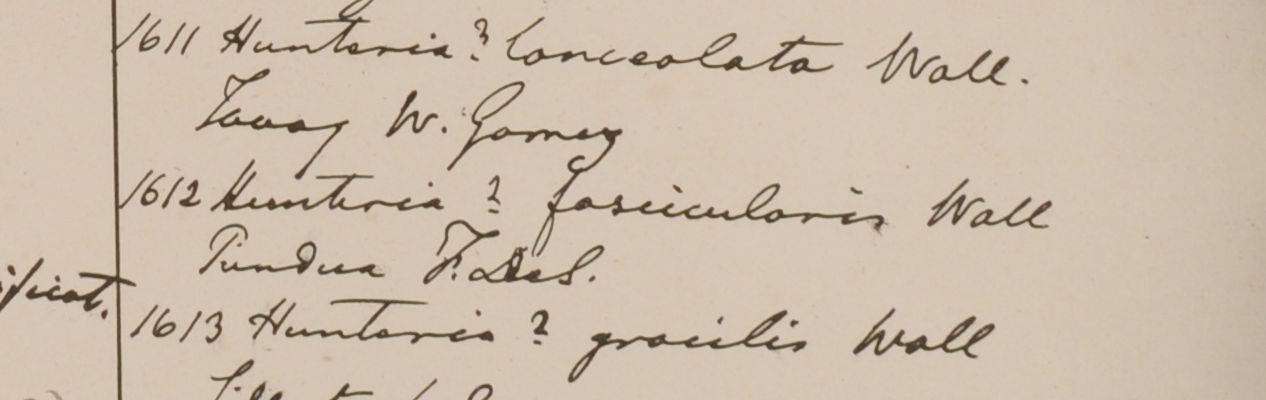 1611 Hunteria? lanceolata Wall.
Tavoy W. Gomez
1612 Hunteria ? fascicularis Wall
Pundua F. De S.
ificat.
1613 Hunteria ? gracilis Wall